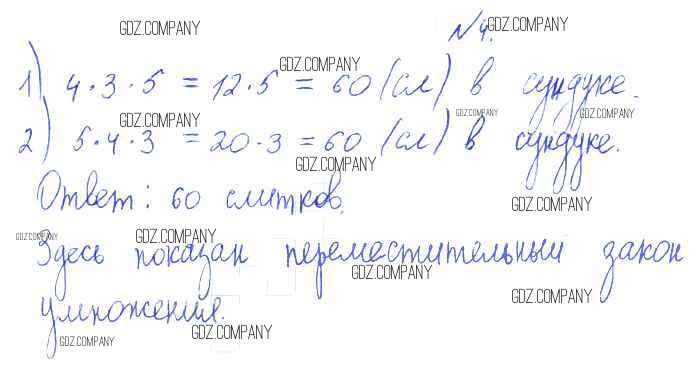 GDZ.COMPANY №4. GDZ.COMPANY
GDZ.COMPANY
1) 4·3·5 = 12·5 = 60 (сл) в сундуке.
GDZ.COMPANY GDZ.COMPANY GDZ.COMPANY
2) 5·4·3 = 20·3 = 60 (сл) в сундуке.
GDZ.COMPANY
Ответ: 60 слитков.
GDZ.COMPANY
GDZ.COMPANY GDZ.COMPANY
Здесь показан переместительный закон
GDZ.COMPANY
GDZ.COMPANY
умножения.
GDZ.COMPANY
GDZ.COMPANY